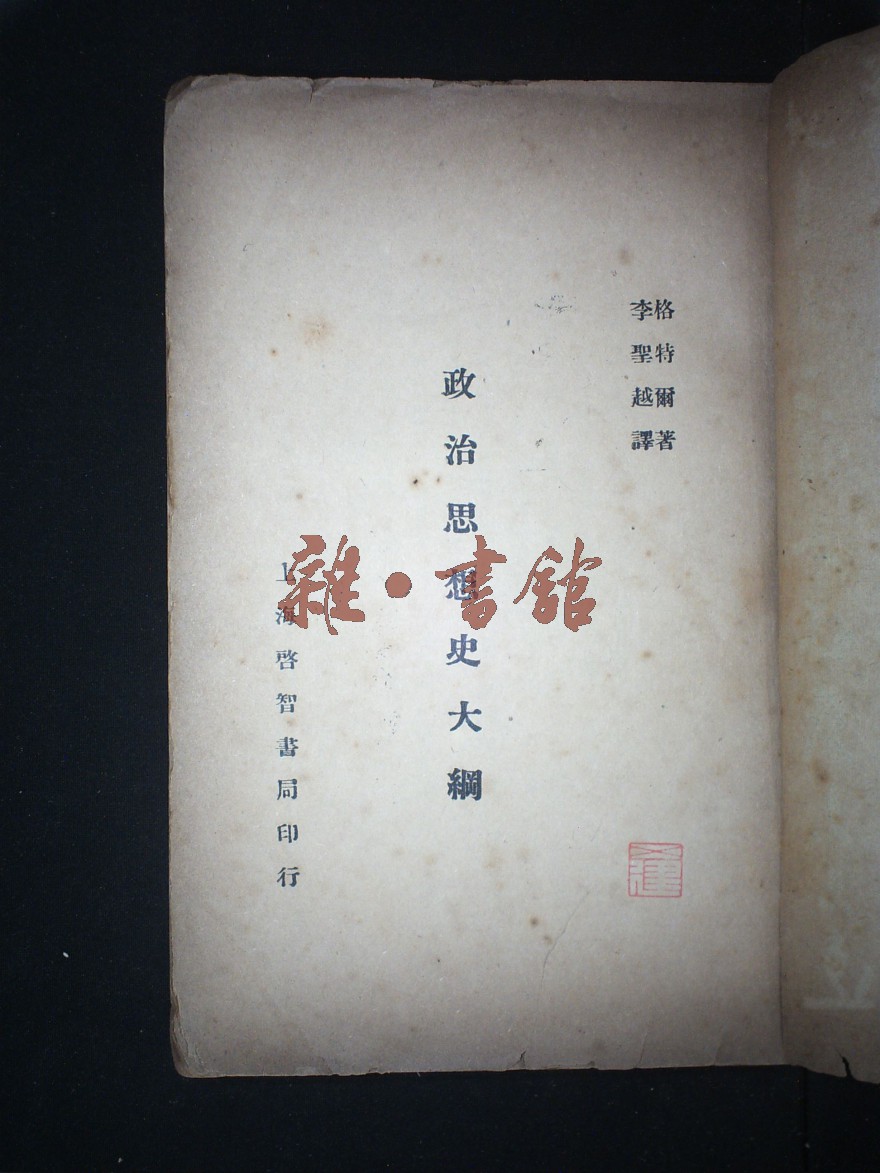 格特爾著
李聖越譯
政治思想史大綱
上海啓智書局印行
雜·書館